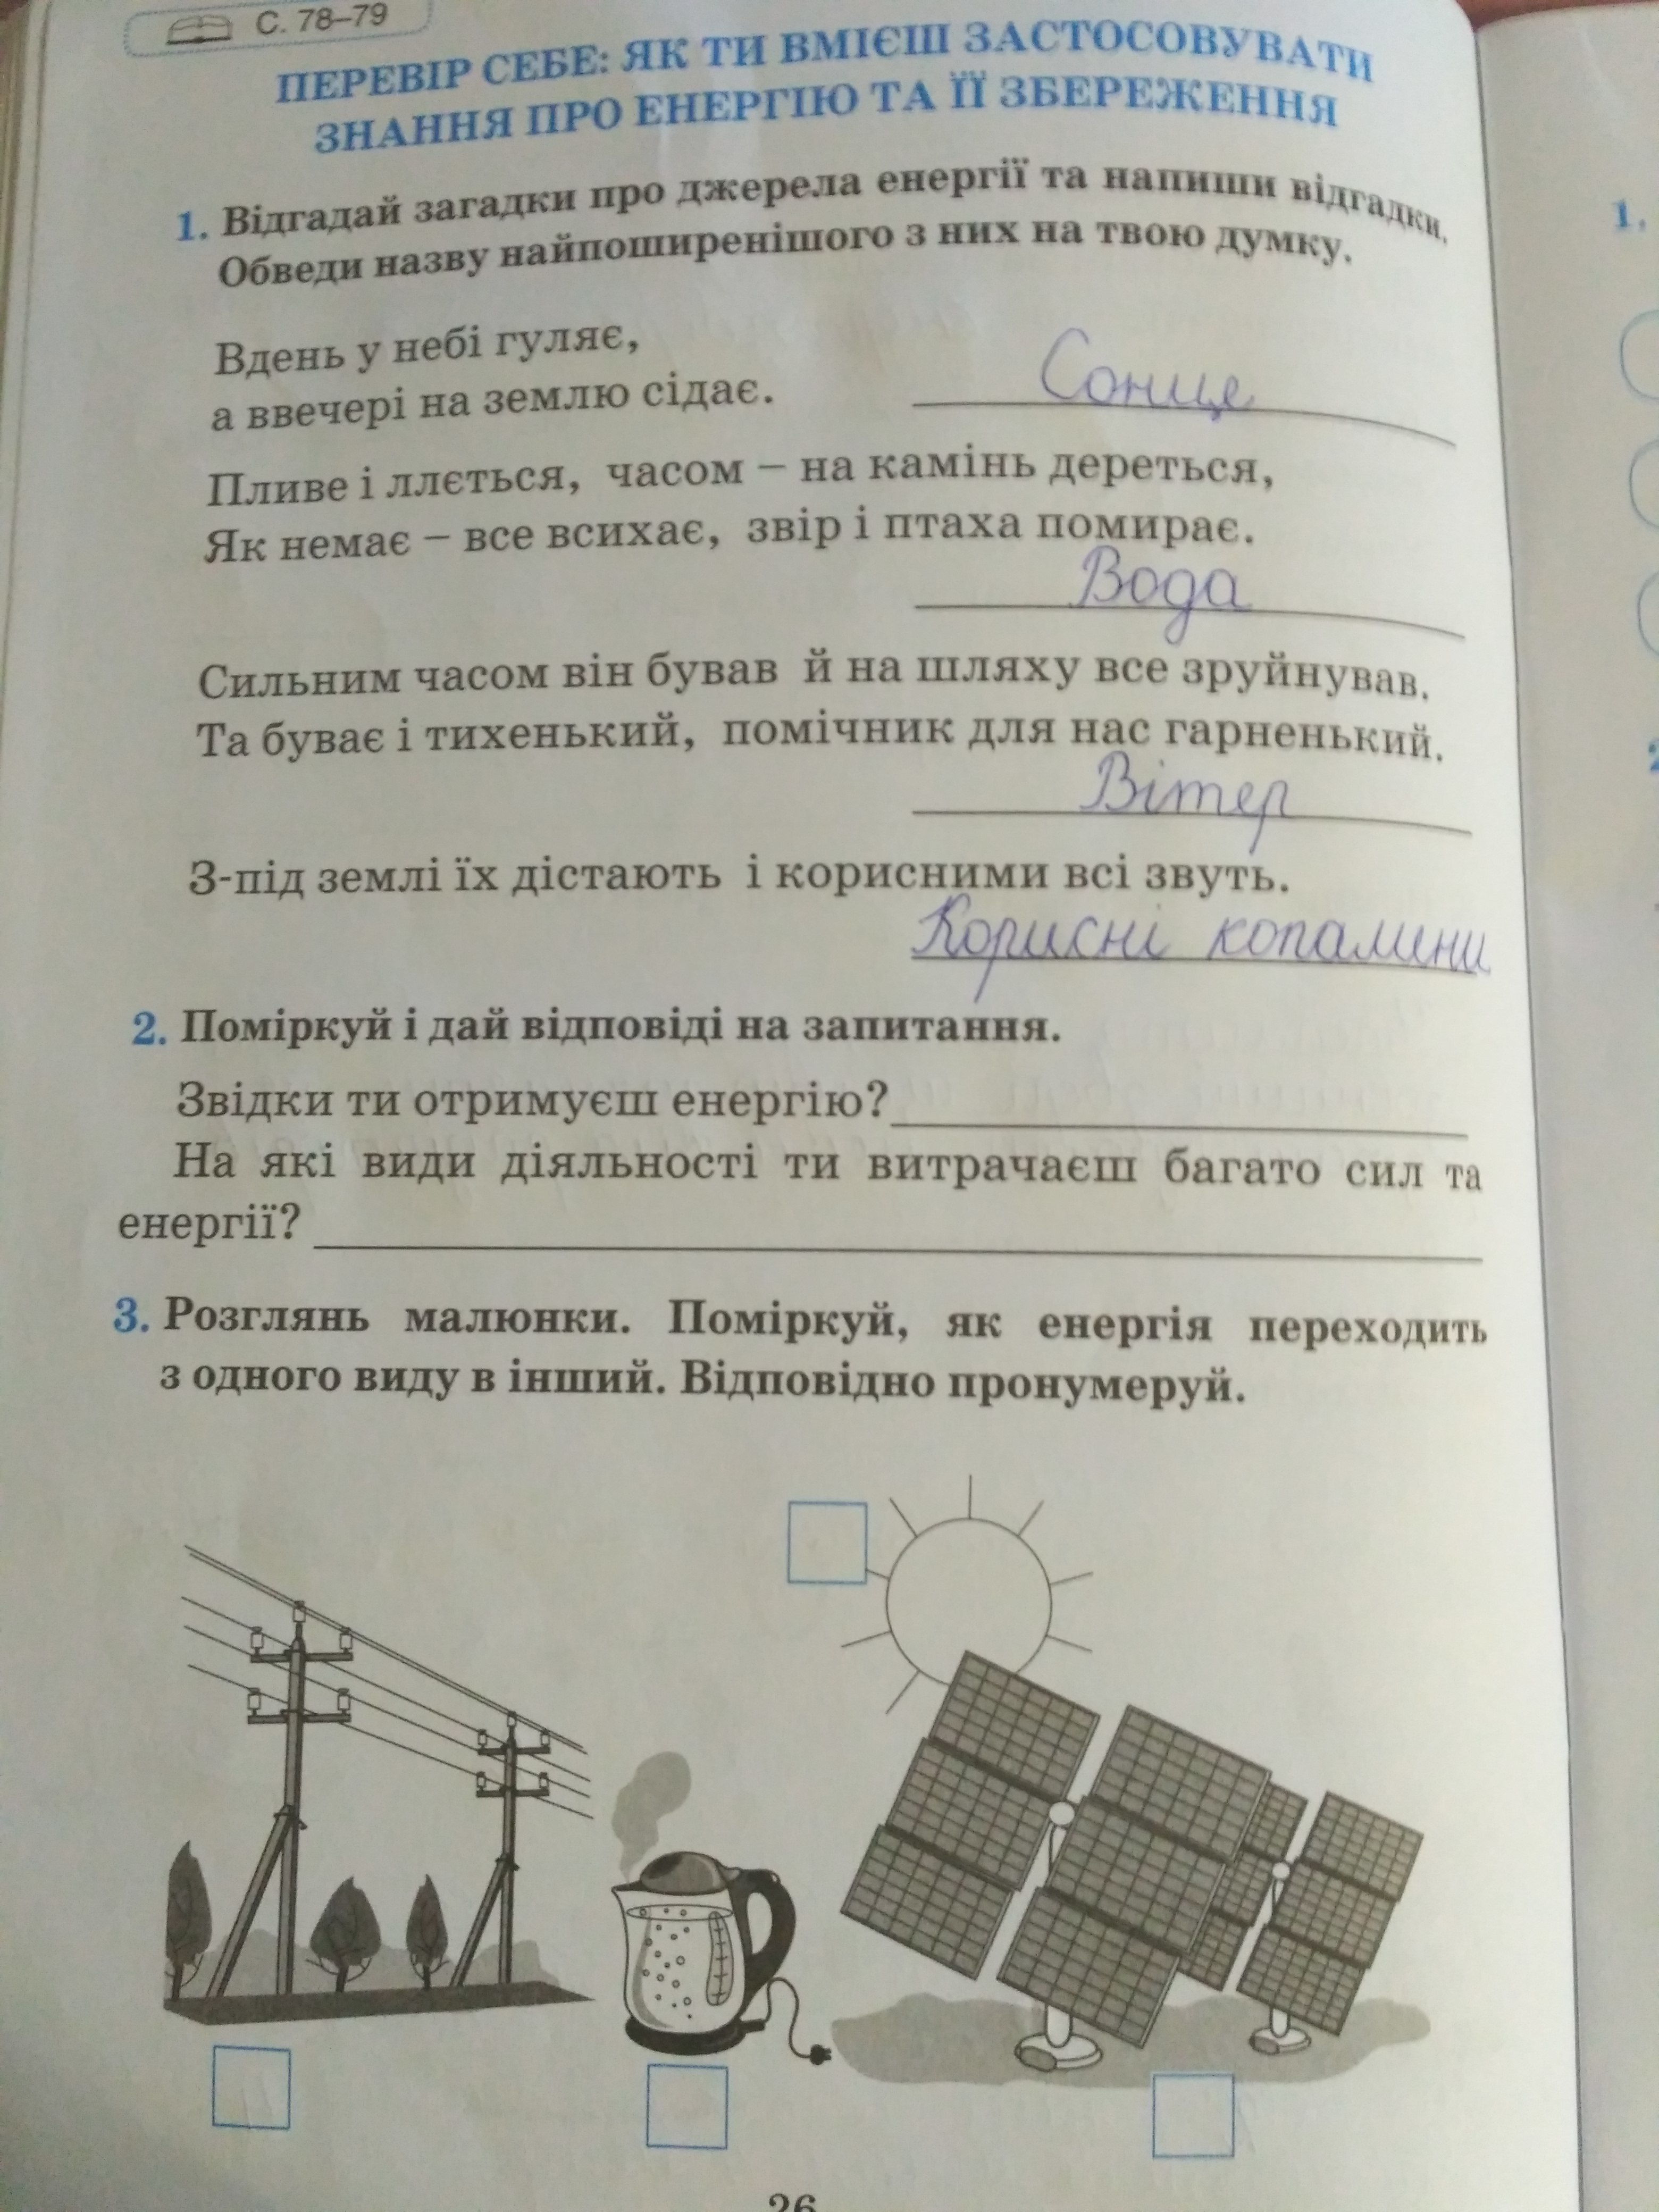 С. 78–79
ПЕРЕВІР СЕБЕ: ЯК ТИ ВМІЄШ ЗАСТОСОВУВАТИ
ЗНАННЯ ПРО ЕНЕРГІЮ ТА ЇЇ ЗБЕРЕЖЕННЯ
1. Відгадай загадки про джерела енергії та напиши відгадки.
Обведи назву найпоширенішого з них на твою думку.
Вдень у небі гуляє,
а ввечері на землю сідає. Сонце
Пливе і ллється, часом – на камінь дереться,
Як немає – все всихає, звір і птаха помирає.
Вода
Сильним часом він бував й на шляху все зруйнував.
Та буває і тихенький, помічник для нас гарненький.
Вітер
З-під землі їх дістають і корисними всі звуть.
Корисні копалини
2. Поміркуй і дай відповіді на запитання.
Звідки ти отримуєш енергію?
На які види діяльності ти витрачаєш багато сил та
енергії?
3. Розглянь малюнки. Поміркуй, як енергія переходить
з одного виду в інший. Відповідно пронумеруй.
26
1.